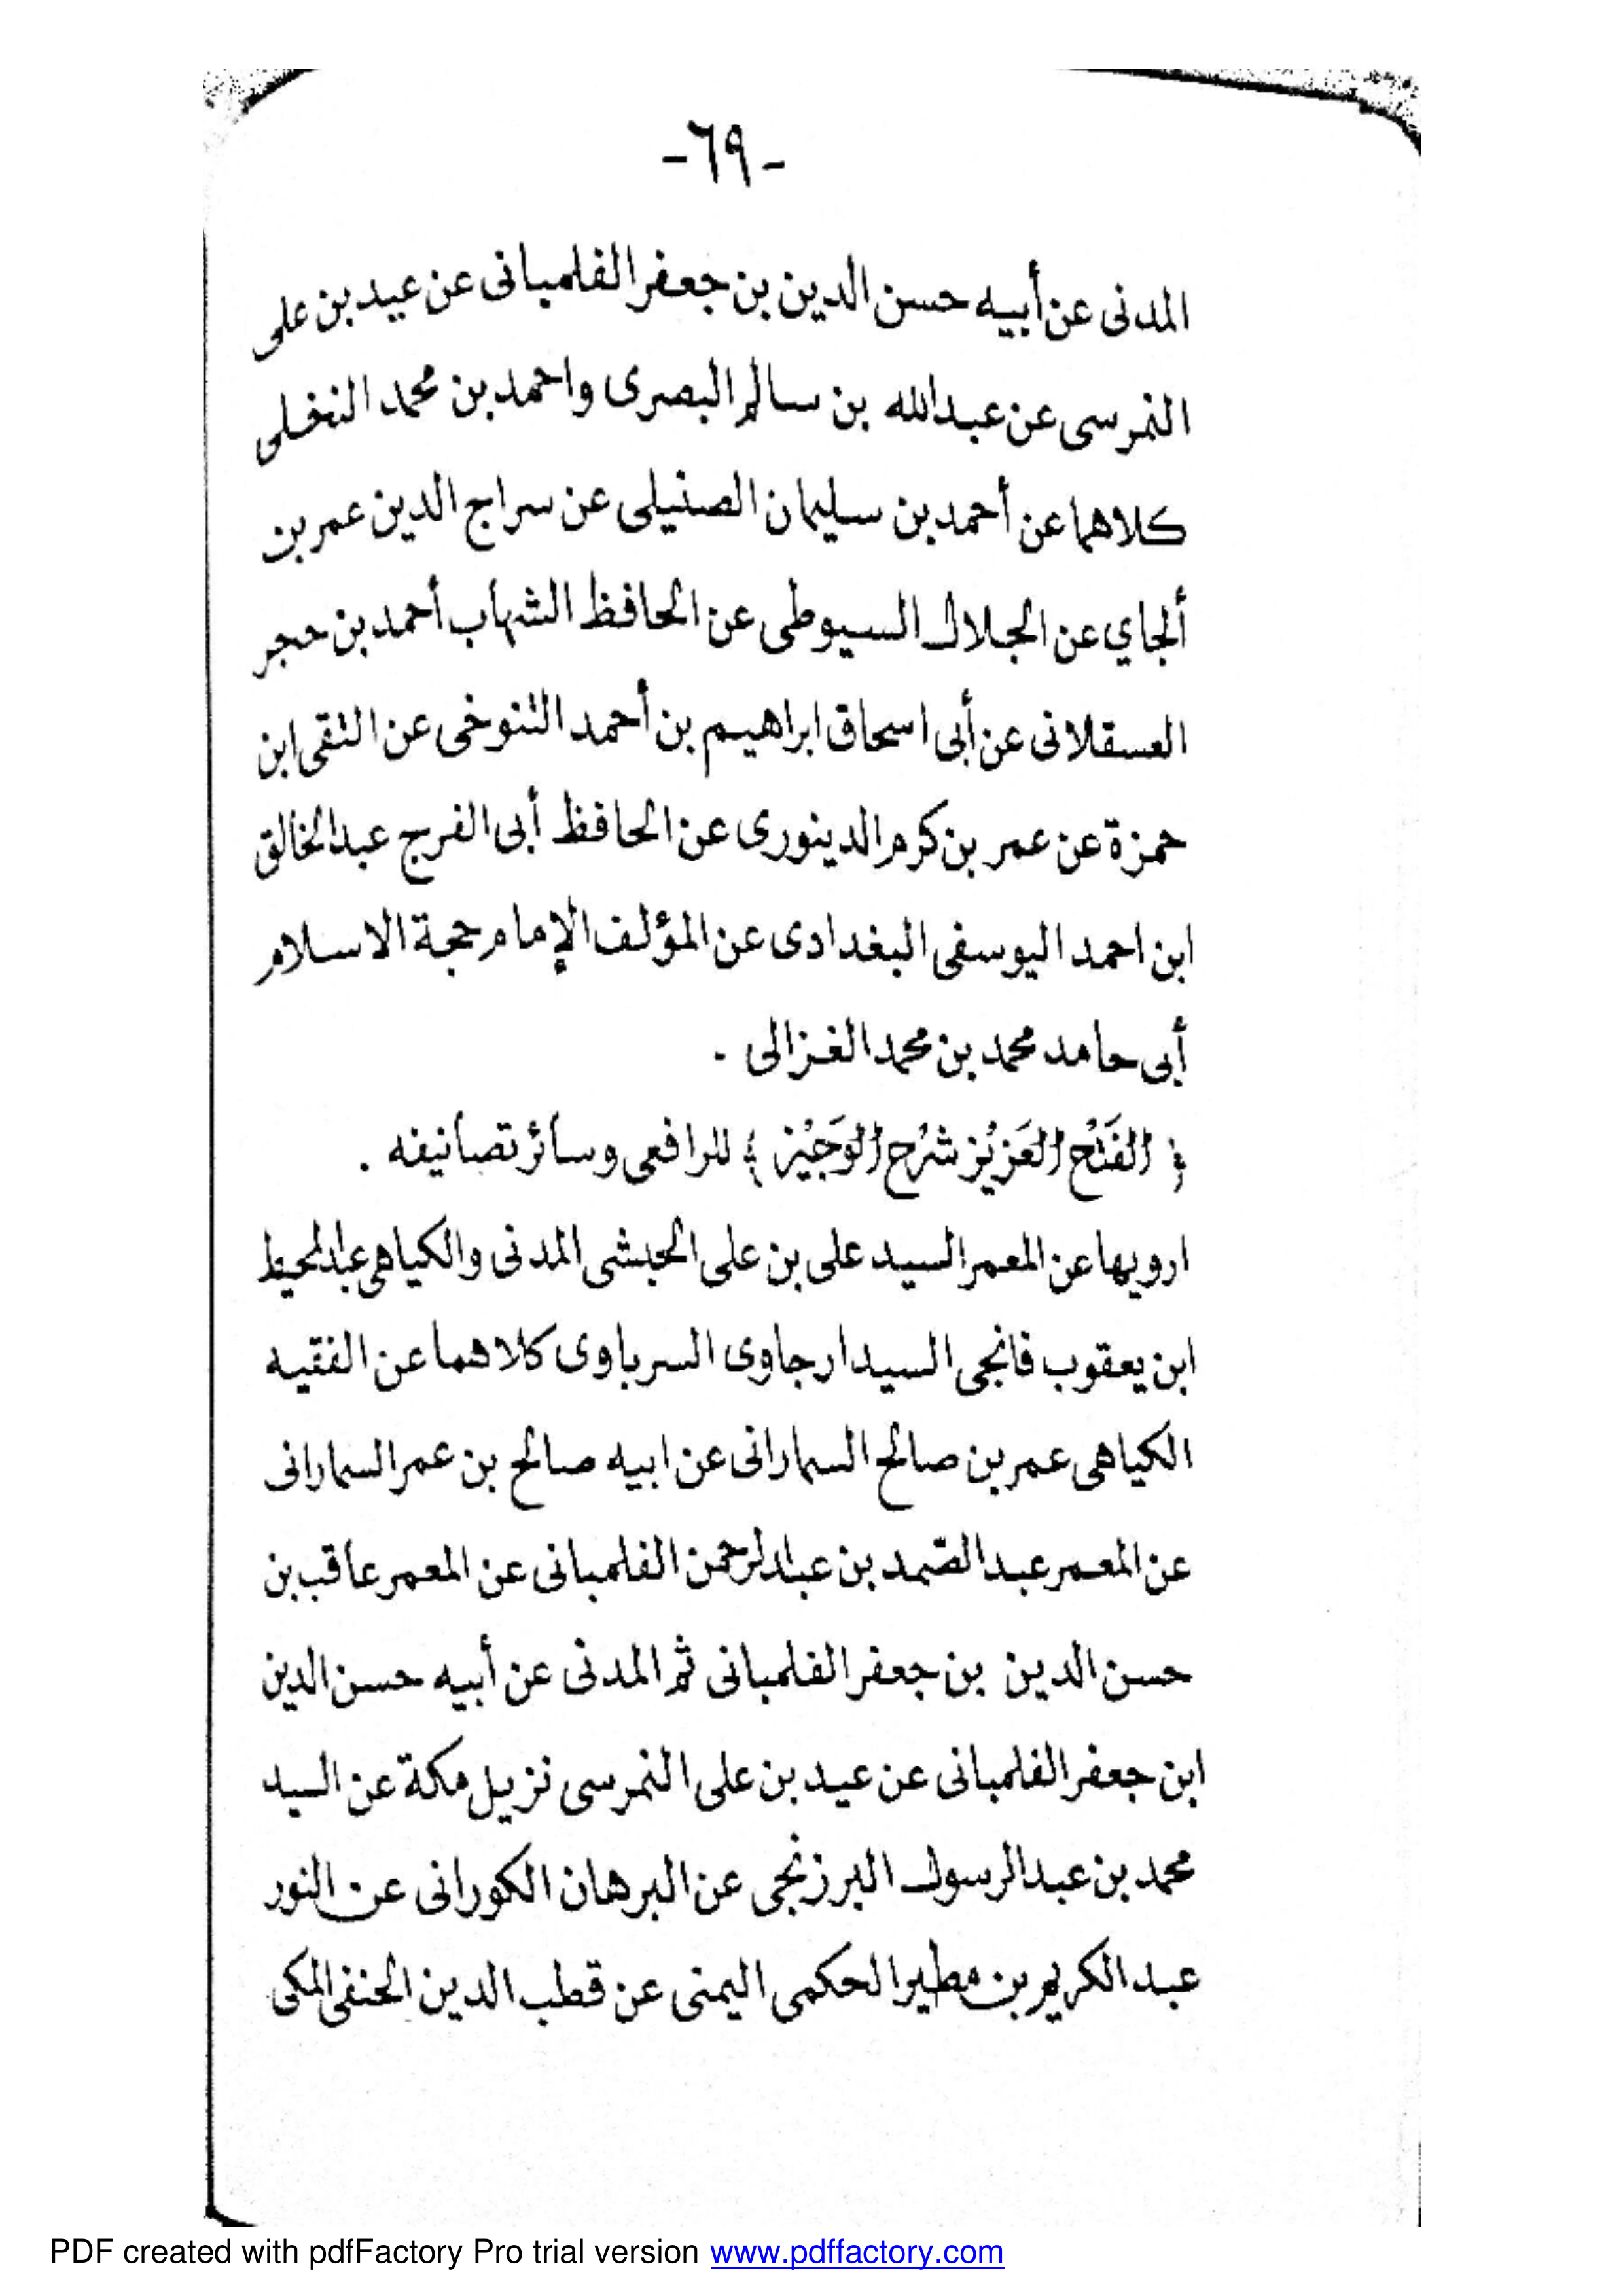 -٦٩-
المدنى عن أبيه حسن الدين بن جعفر الفلمبانى عن عيد بن على
النمرسى عن عبدالله بن سالم البصرى واحمد بن محمد النخلى
كلاهما عن أحمد بن سليمان الصنيلى عن سراج الدين عمر بن
ألجاي عن الجلال السيوطى عن الحافظ الشهاب أحمد بن حجر
العسقلانى عن أبى اسحاق ابراهيم بن أحمد التنوخى عن التقى ابن
حمزة عن عمر بن كرم الدينورى عن الحافظ أبى الفرج عبد الخالق
ابن احمد اليوسفى البغدادى عن المؤلف الإمام حجة الاسلام
أبى حامد محمد بن محمد الغزالى .
﴿ الفَتْح العَزِيْز شَرْح الوَجَيْز ﴾ للرافعى وسائر تصانيفه .
ارويها عن المعمر السيد على بن على الحبشى المدنى والكياهى عبد المحيط
ابن يعقوب فانجى السيدارجاوى السرباوى كلاهما عن الفقيه
الكياهى عمر بن صالح السمارانى عن ابيه صالح بن عمر السمارانى
عن المعمر عبد الصّمد بن عبد الرحمن الفلمبانى عن المعمر عاقب بن
حسن الدين بن جعفر الفلمبانى ثم المدنى عن أبيه حسن الدين
ابن جعفر الفلمبانى عن عيد بن على النمرسى نزيل مكة عن السيد
محمد بن عبد الرسول البرزنجى عن البرهان الكورانى عن النور
عبد الكريم بن مطير الحكمى اليمنى عن قطب الدين الحنفى المكى
PDF created with pdfFactory Pro trial version www.pdffactory.com